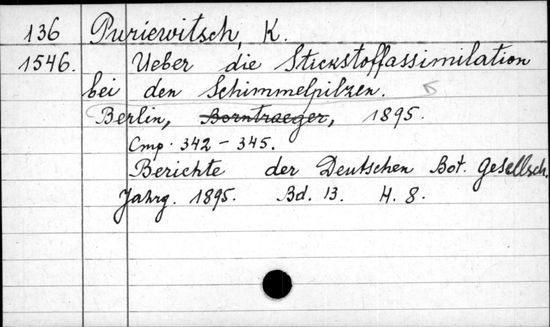 136 Puriewitsch, K.
1546. Ueber die Stickstoffassimilation
bei den Schimmelpilzen.
Berlin, Borntraeger, 1895.
Стр. 342-345.
Berichte der Deutschen Bot. Gesellsch.
Jahrg. 1895. Bd. 13. H. 8.